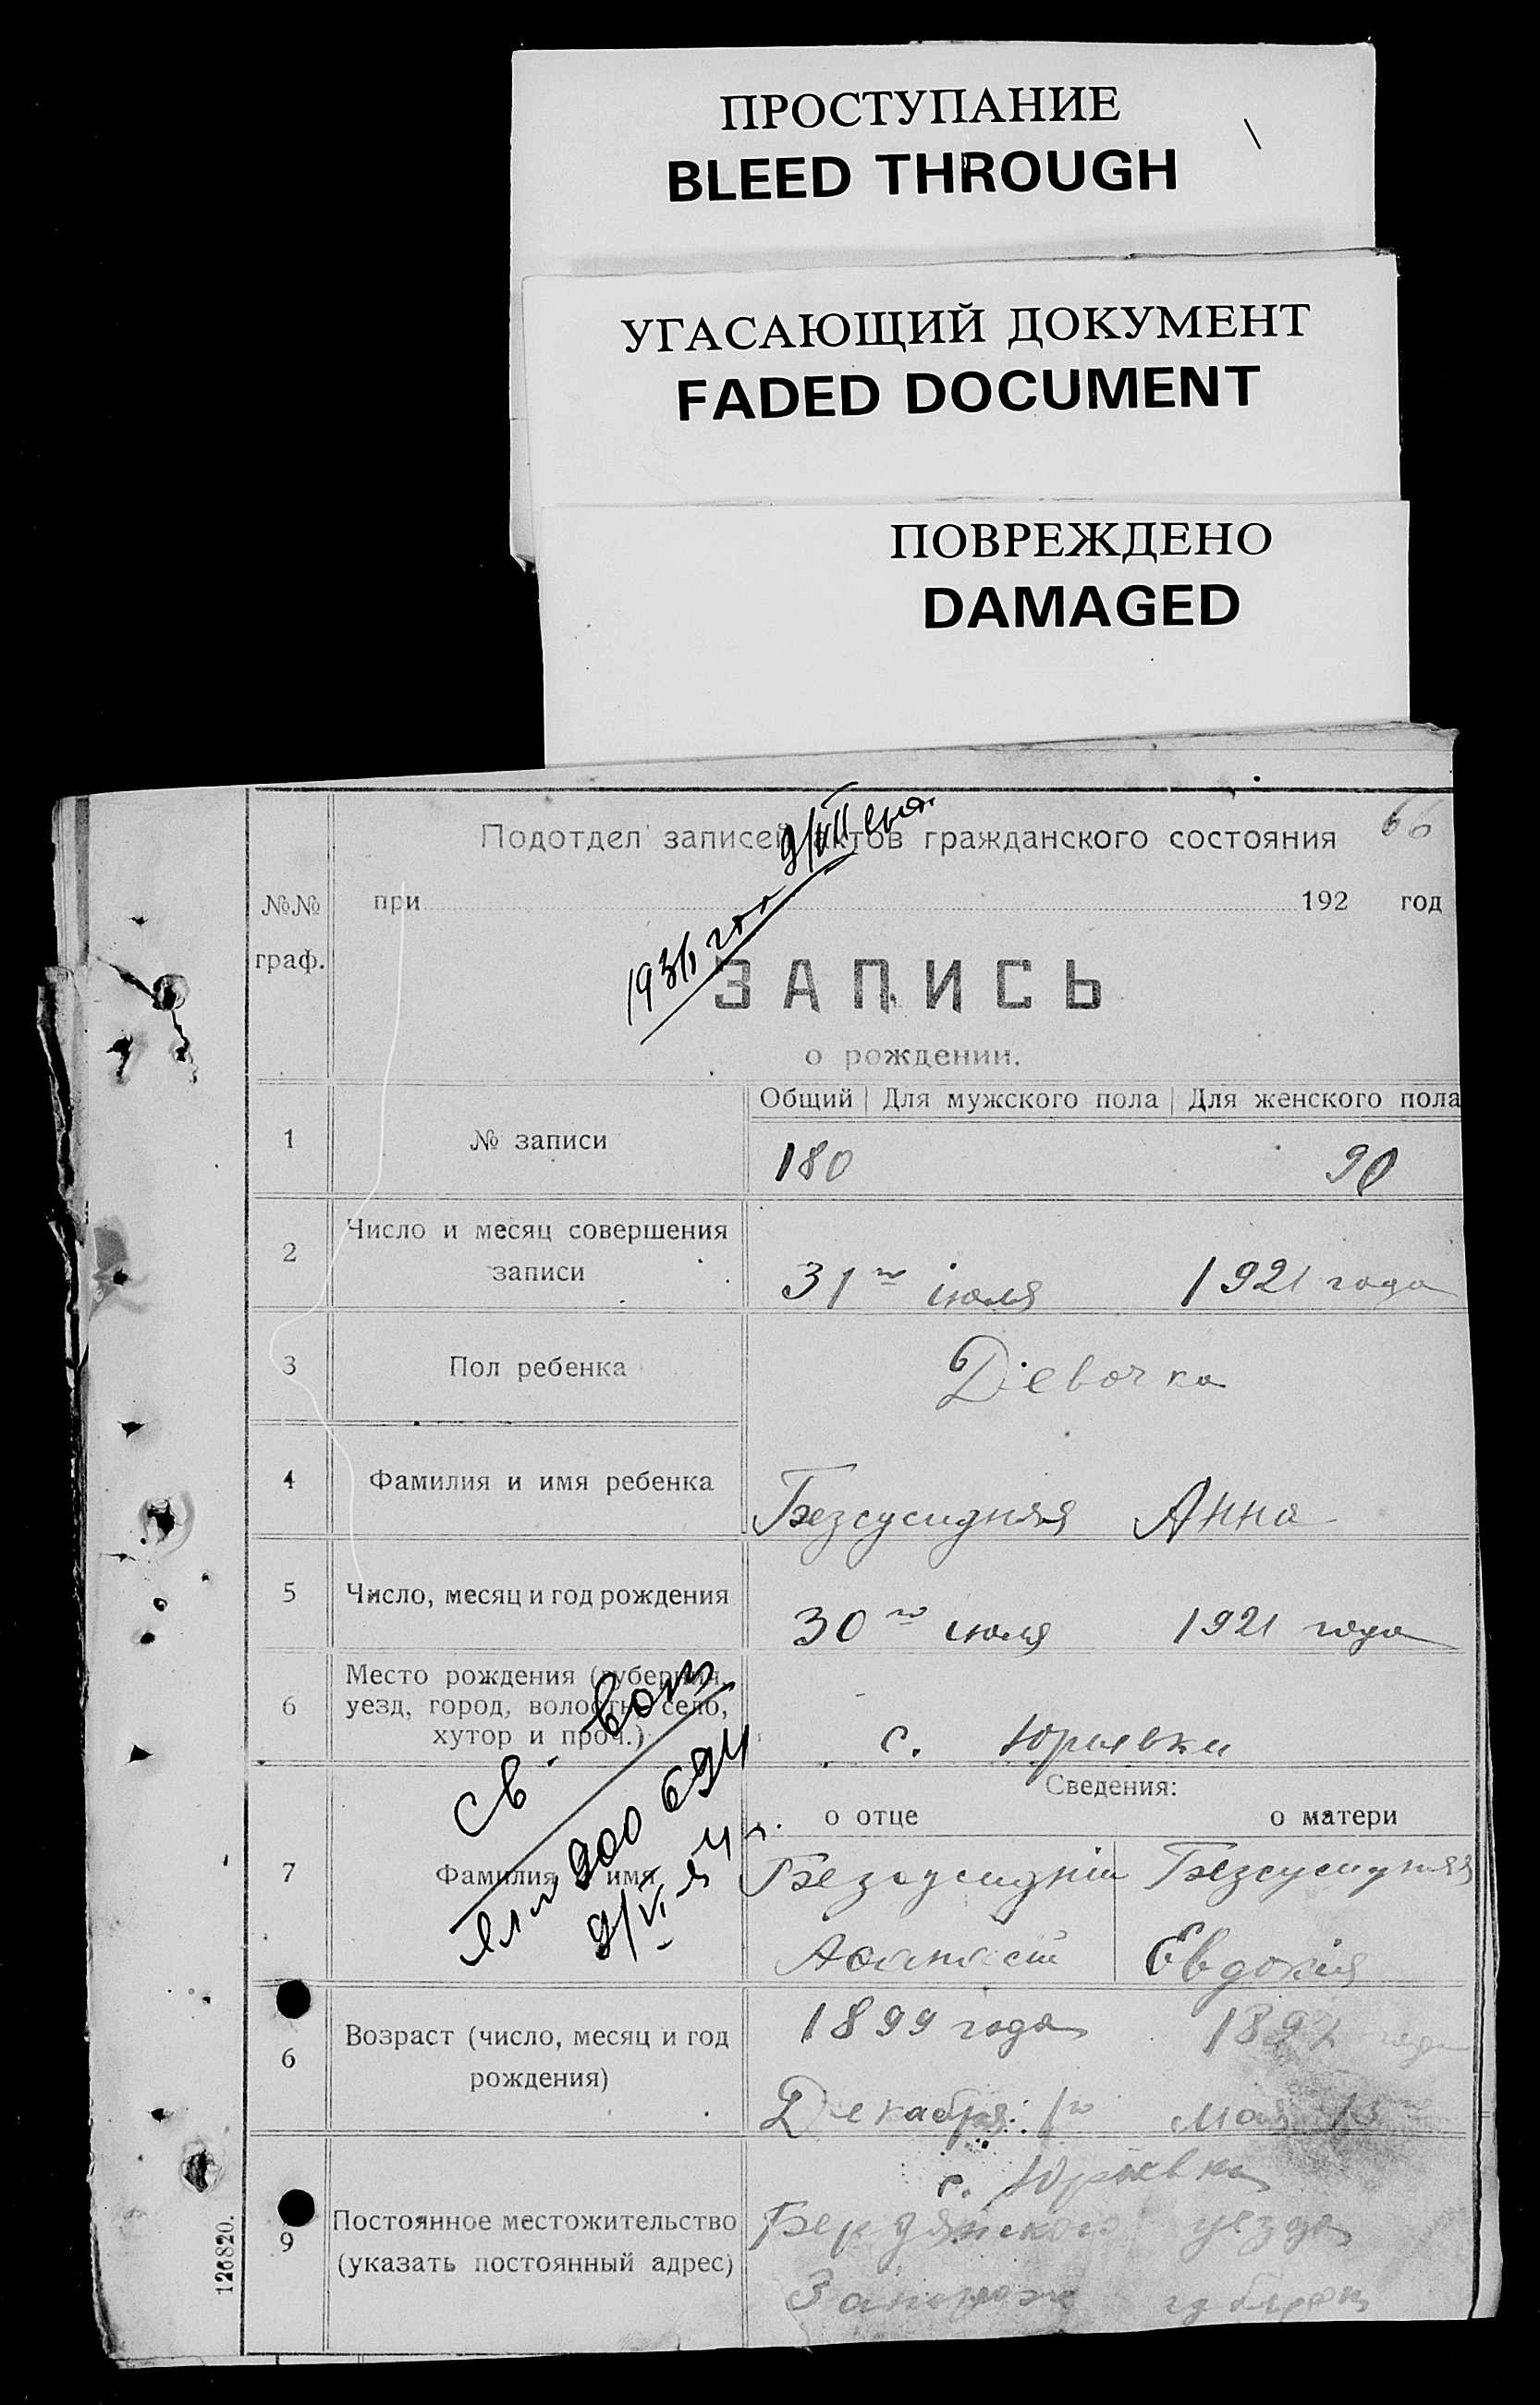 ПРОСТУПАНИЕ
BLEED THROUGH
УГАСАЮЩИЙ ДОКУМЕНТ
FADED DOCUMENT
ПОВРЕЖДЕНО
DAMAGED
66
Подотдел записей актов гражданского состояния
№№ граф.
при 192 год
1936 9/VII
ЗАПИСЬ
о рождении.
Общий | Для мужского пола | Для женского пола
1 № записи 180 90
2 Число и месяц совершения записи
31го июля 1921 года
3 Пол ребенка Девочка
4 Фамилия и имя ребенка Безсусидняя Анна
5 Число, месяц и год рождения 30го июля 1921 года
6 Место рождения (губерния, уезд, город, волость, село, хутор и проч.)
с. Юрьевки
Св.
900694
9/VI 54 г.
Сведения:
о отце о матери
7 Фамилия имя
Безсусидній Безсусидняя
Евдокия
6 Возраст (число, месяц и год рождения)
1899 года
Декабря 1го мая
9 Постоянное местожительство (указать постоянный адрес)
с. Юрьевка
Бердянского уезда
Запорож губерн
126820.